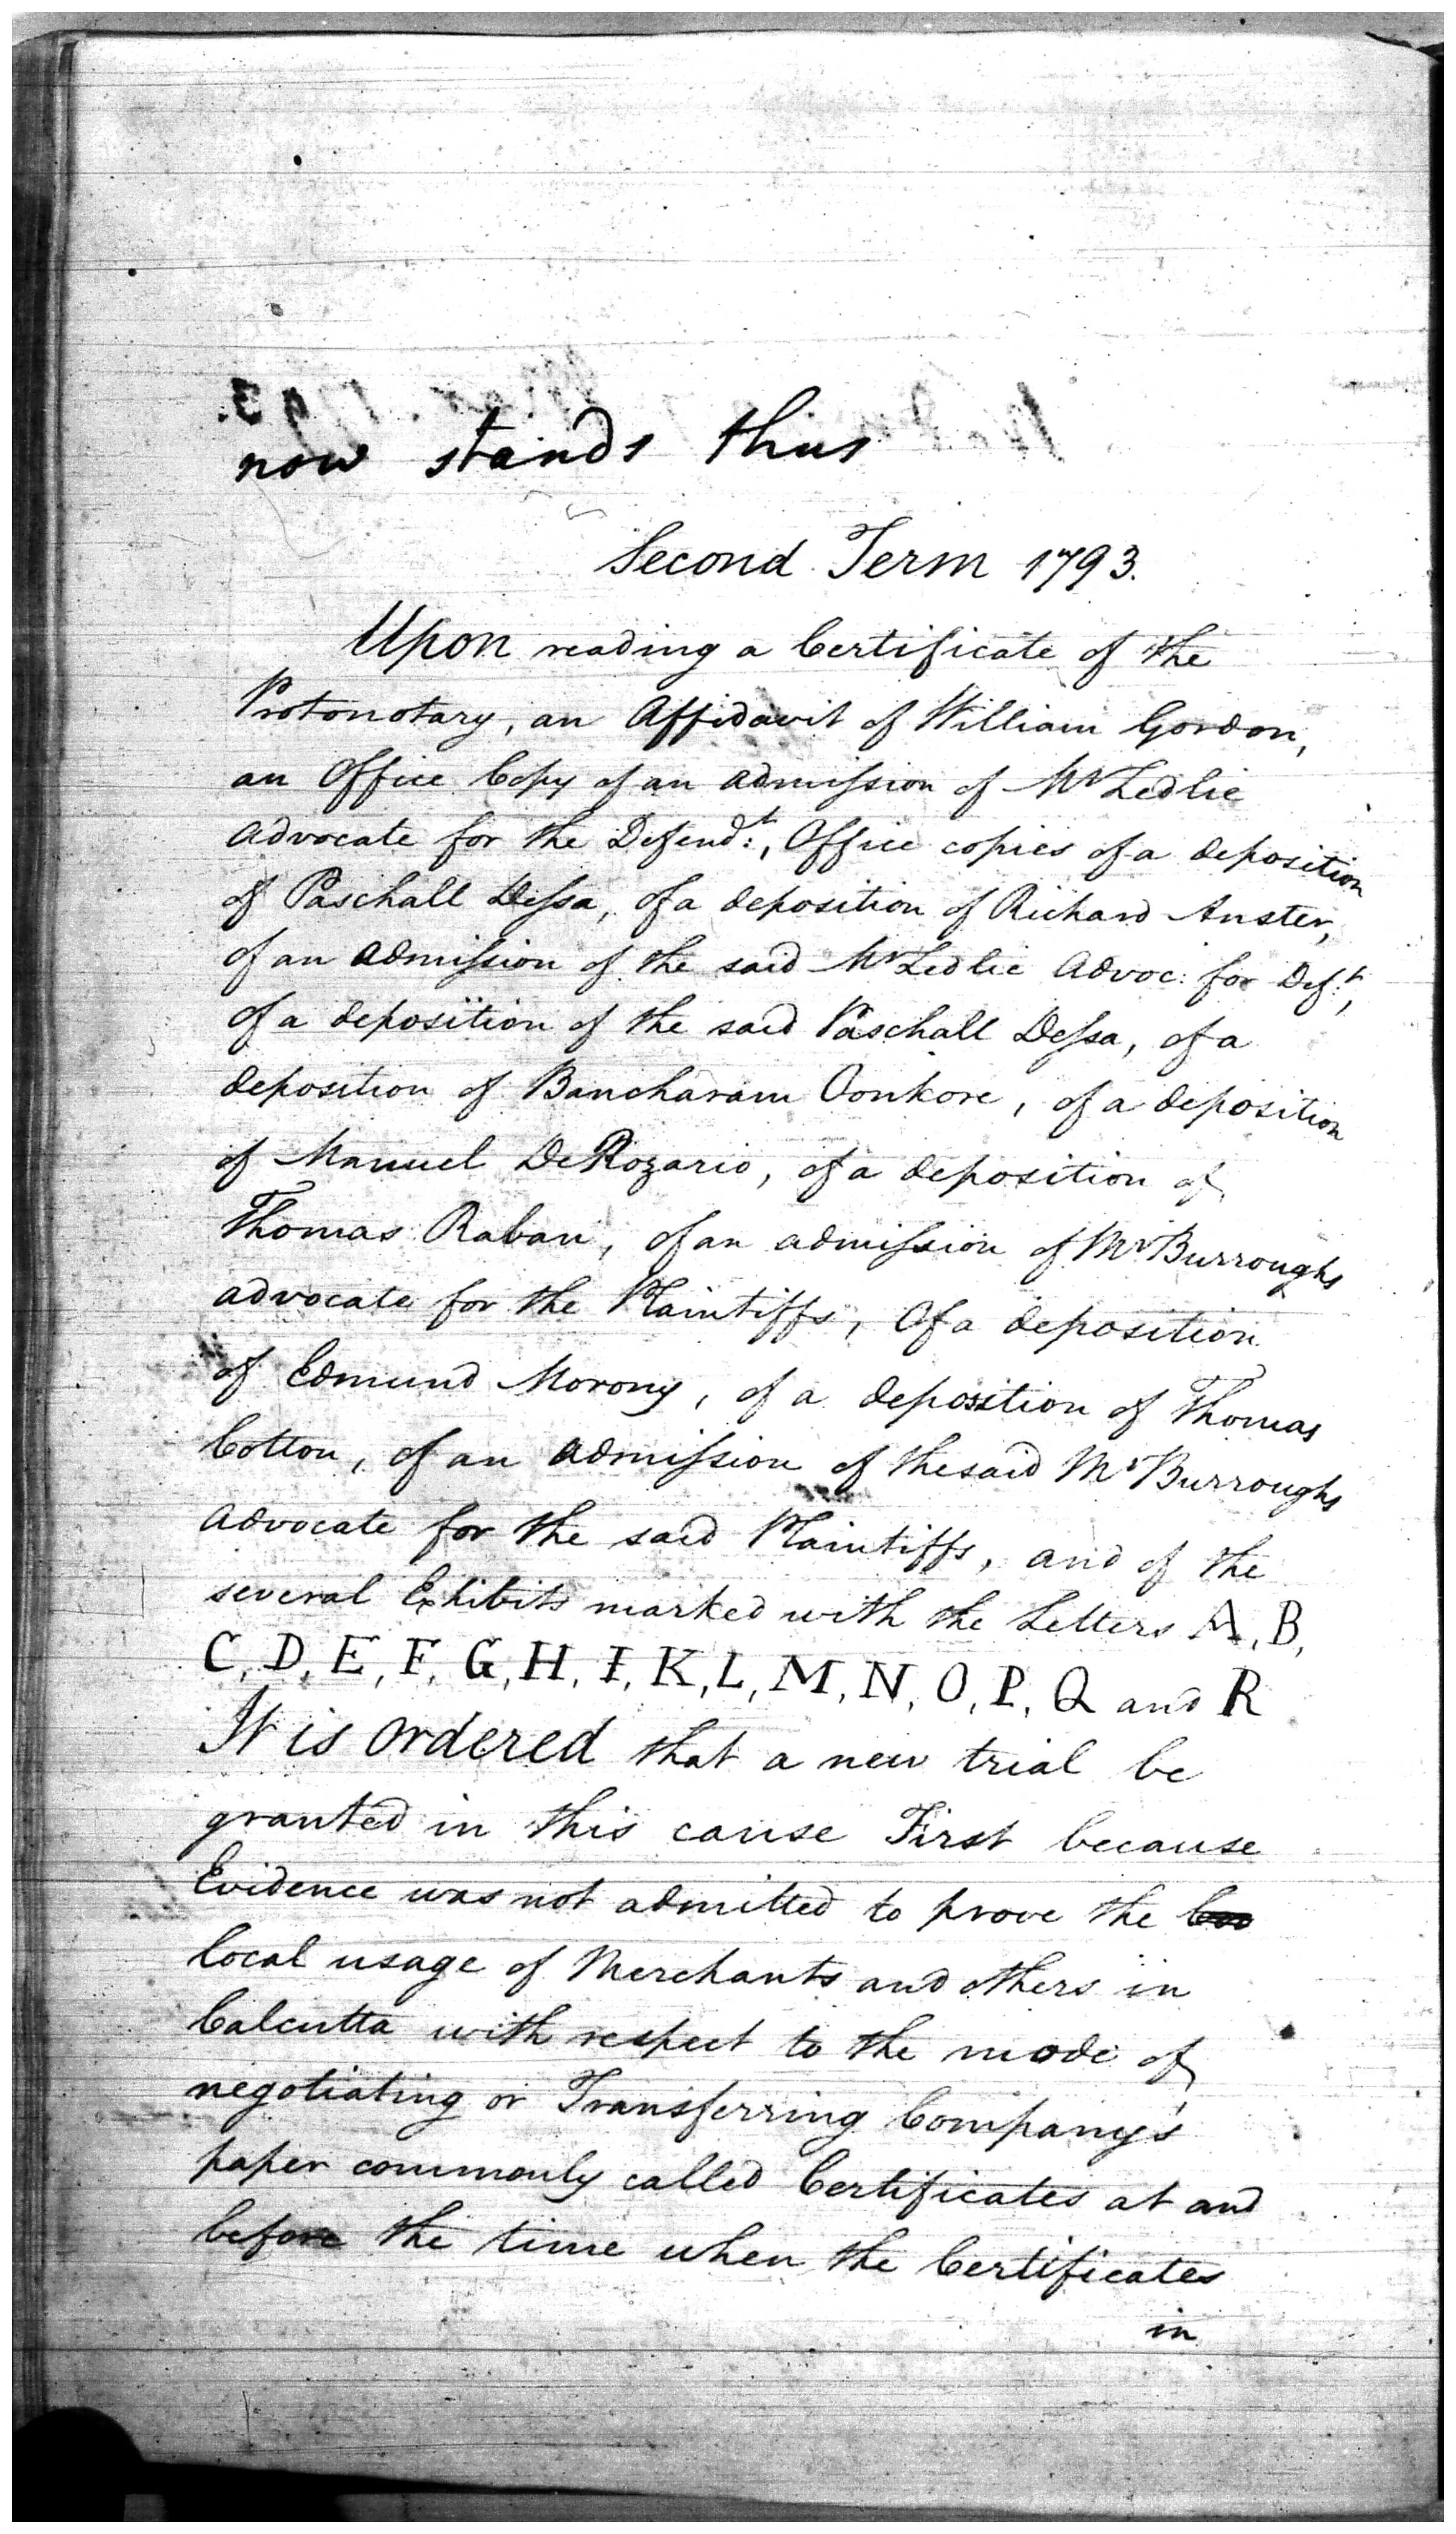 now stands thus
Second Term 1793.
Upon reading a Certificate of the
Protonotary, an Affidavit of William Gordon,
an Office Copy of an admission of Mr Ledlie
Advocate for the Defend:t, Office copies of a deposition
of Paschall Dessa, of a deposition of Richard Anster,
of an admission of the said Mr Ledlie Advoc: for Def:t,
of a deposition of the said Paschall Dessa, of a
deposition of Bancharam Oonkore, of a deposition
of Manuel DeRozario, of a deposition of
Thomas Raban, of an admission of Mr Burroughs
advocate for the Plaintiffs, Of a deposition
of Edmund Morony, of a deposition of Thomas
Cotton, of an admission of the said Mr Burroughs
Advocate for the said Plaintiffs, and of the
several Exhibits marked with the Letters A, B,
C, D, E, F, G, H, I, K, L, M, N, O, P, Q and R
It is ordered that a new trial be
granted in this cause First because
Evidence was not admitted to prove the
local usage of Merchants and others in
Calcutta with respect to the mode of
negotiating or Transferring Company's
paper commonly called Certificates at and
before the time when the Certificates
in